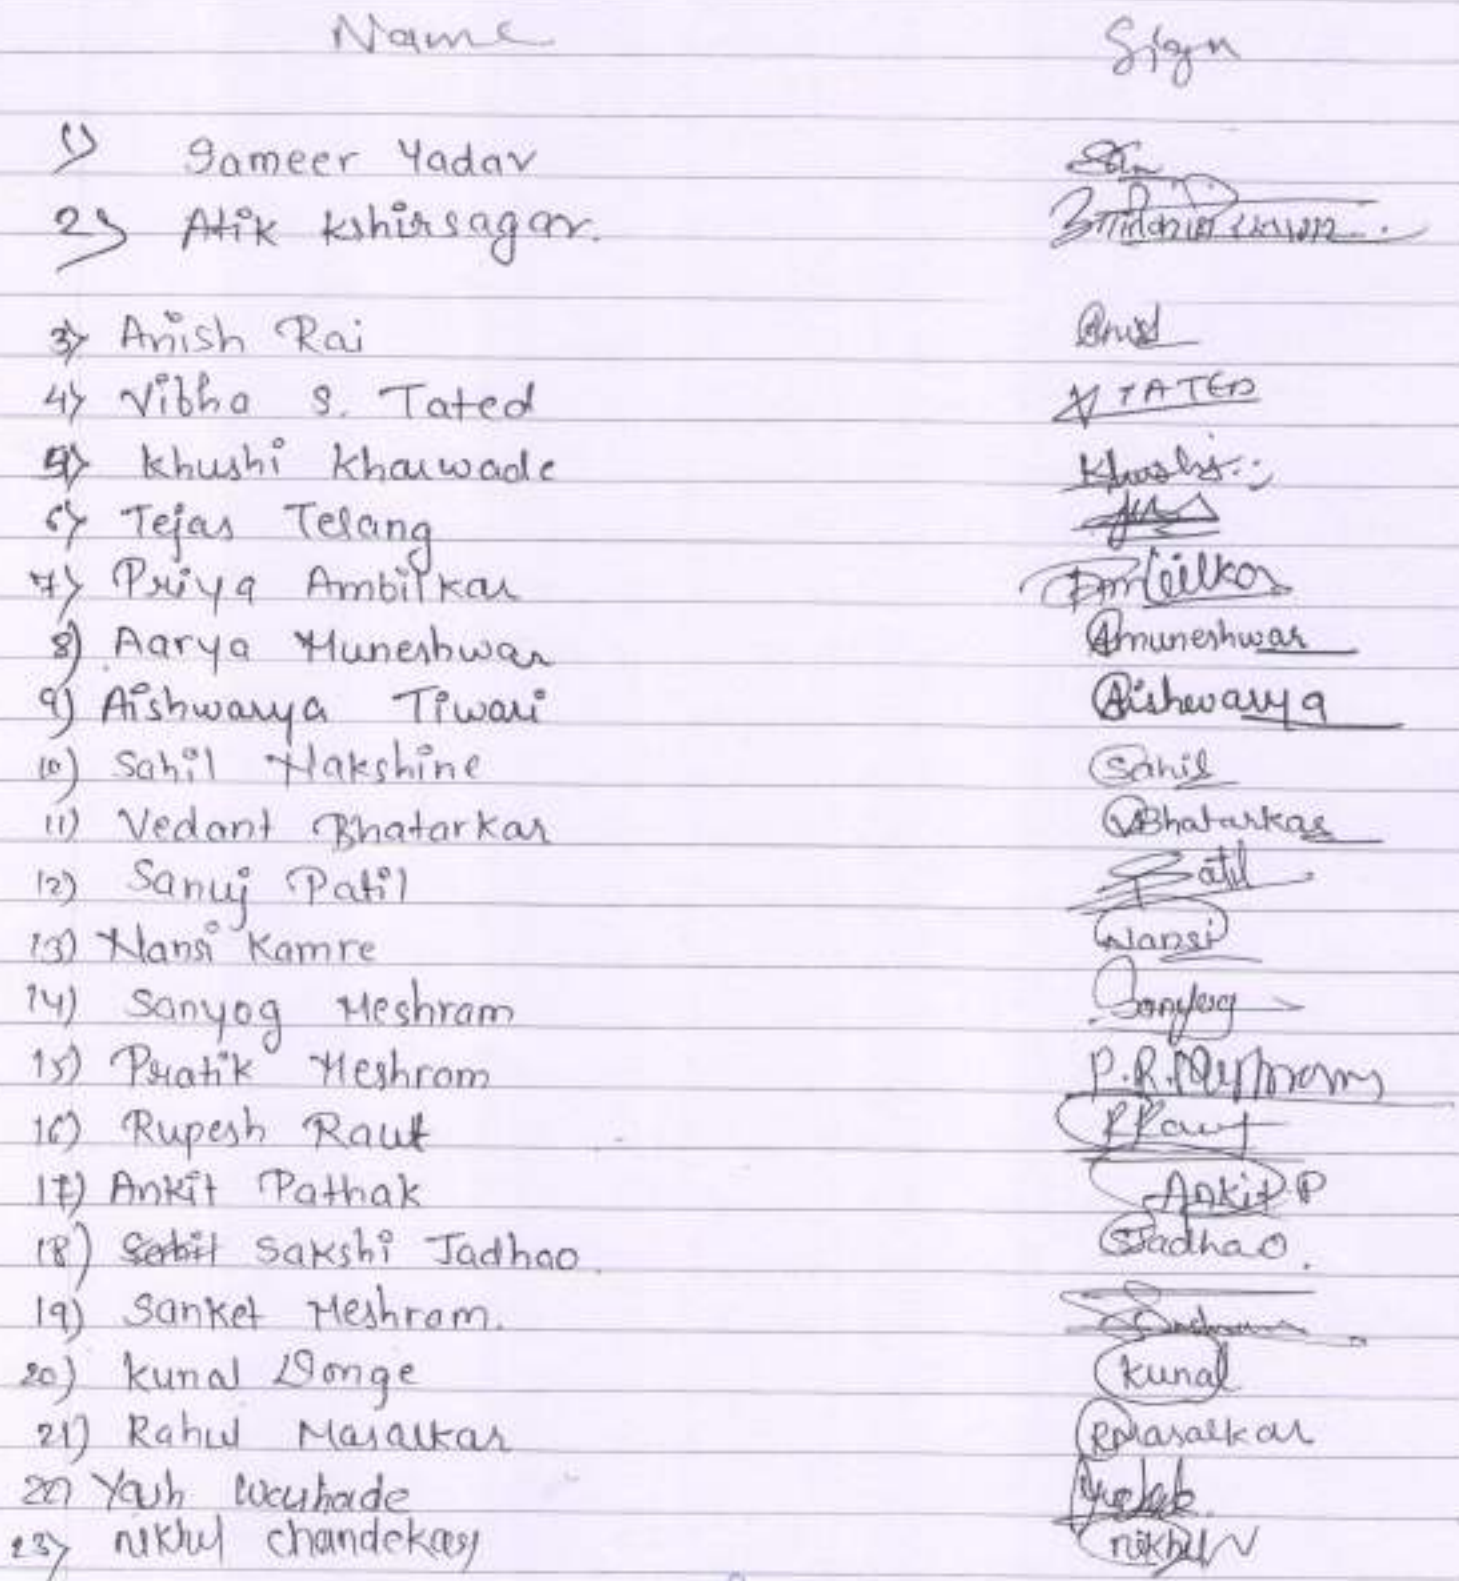 Name Sign
1) Sameer Yadav
2) Atik Kshirsagar.
3) Anish Rai
4) Vibha S. Tated V TATED
5) Khushi Kharwade Khushi
6) Tejas Telang
7) Priya Ambilkar
8) Aarya Muneshwar Amuneshwar
9) Aishwarya Tiwari Aishwarya
10) Sahil Nakshine Sahil
11) Vedant Bhatarkar VBhatarkar
12) Sanuj Patil Patil
13) Nansi Kamre Nansi
14) Sanyog Meshram Sanyog
15) Pratik Meshram P.R. Meshram
16) Rupesh Raut RRaut
17) Ankit Pathak Ankit P
18) Sakshi Jadhao. SJadhao.
19) Sanket Meshram.
20) Kunal Donge Kunal
21) Rahul Masalkar RMasalkar
22) Yash
23) Nikhil Nikhil